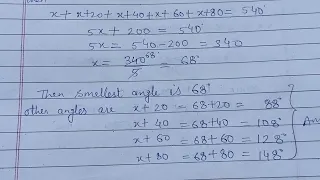 x + x+20 + x+40 + x+60 + x+80 = 540°
5x + 200 = 540°
5x = 540-200 = 340
x = 340° 68° / 5 = 68°
Then smallest angle is 68°
other angles are x + 20 = 68+20 = 88°
x + 40 = 68+40 = 108°
x + 60 = 68+60 = 128°
x + 80 = 68+80 = 148°